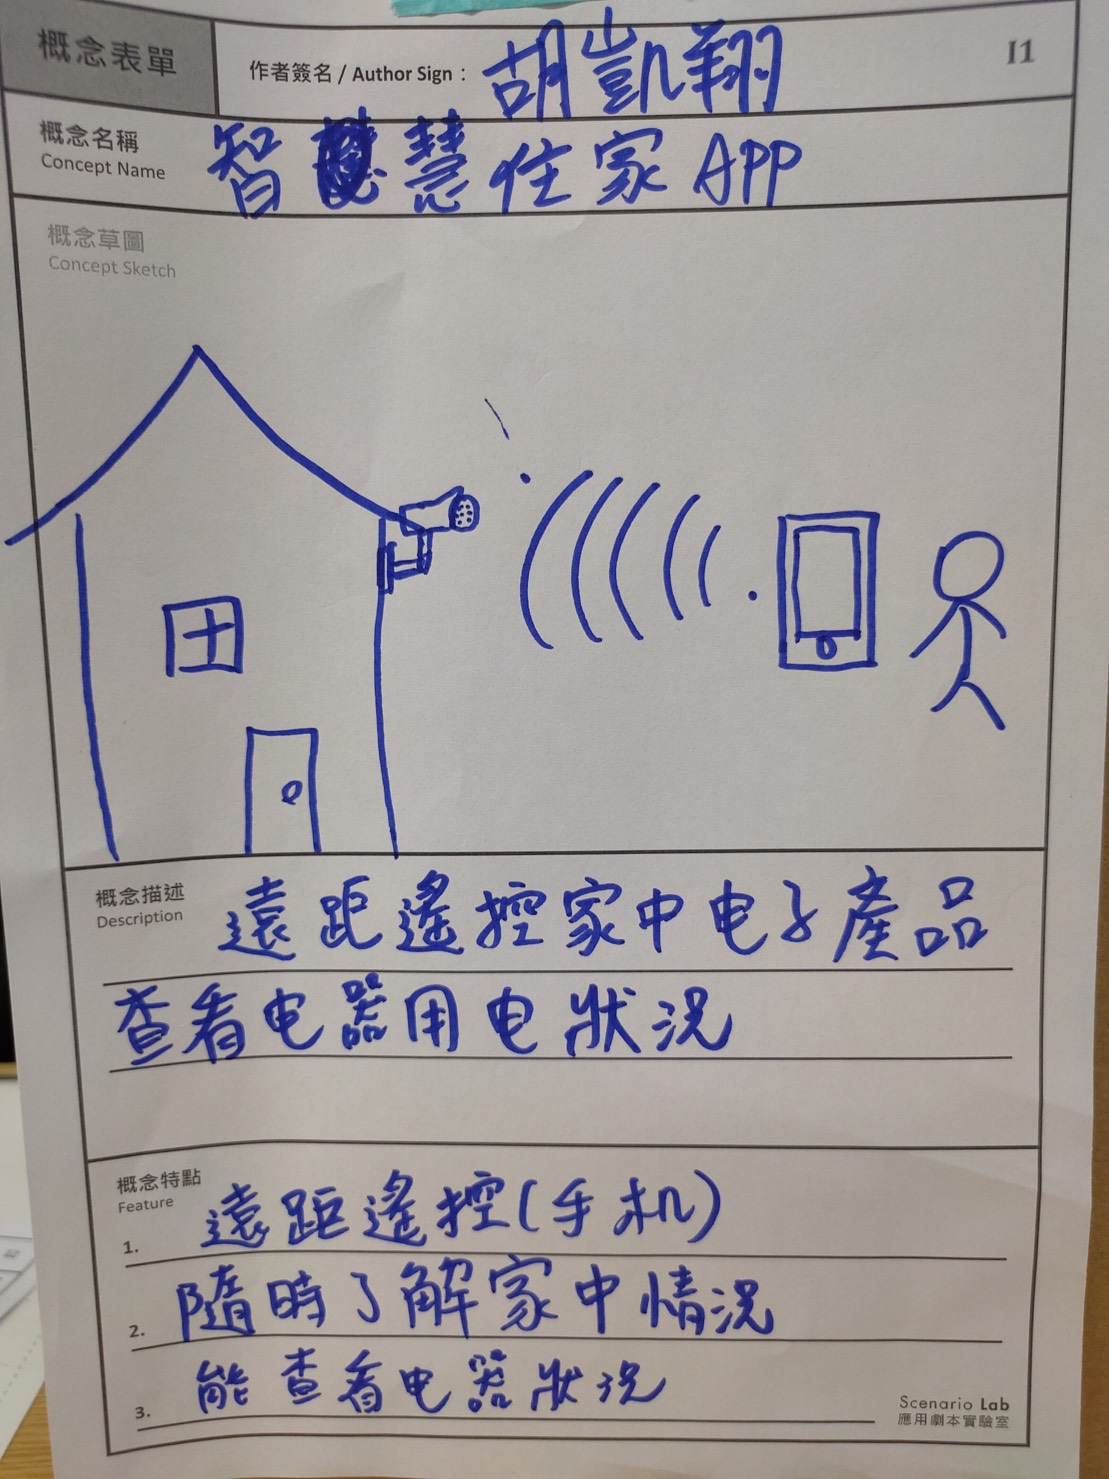 概念表單
作者簽名 / Author Sign： 胡凱翔
I1
概念名稱
Concept Name
智慧住家APP
概念草圖
Concept Sketch
概念描述
Description
遠距遙控家中电子產品
查看电器用电狀況
概念特點
Feature
1. 遠距遙控(手机)
2. 隨時了解家中情況
3. 能查看电器狀況
Scenario Lab
應用劇本實驗室